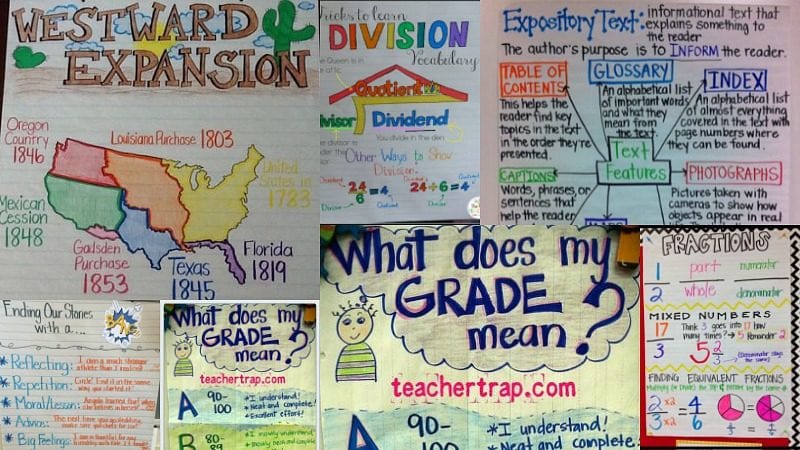 WESTWARD
EXPANSION
Oregon
Country
1846
Louisiana Purchase 1803
United
States in
1783
Mexican
Cession
1848
Gadsden
Purchase
1853
Texas
1845
Florida
1819
Tricks to learn
DIVISION
Vocabulary
Quotient
Divisor
Dividend
You divide in the den
Other Ways to Show
Division
24
6
=4
24÷6=4
Expository Text: informational text that
explains something to
the reader
The author's purpose is to INFORM the reader.
TABLE OF
CONTENTS
This helps the
reader find key
topics in the text
in the order they're
presented.
GLOSSARY
An alphabetical list
of important words
and what they
mean from
the text.
INDEX
An alphabetical list
of almost everything
covered in the text with
page numbers where
they can be found.
Text
Features
CAPTIONS
Words, phrases, or
sentences that
help the reader
PHOTOGRAPHS
Pictures taken with
cameras to show how
objects appear in real
Ending Our Stories
with a...
* Reflecting:
* Repetition:
* Moral/Lesson:
* Advice:
* Big Feelings:
What does my
GRADE
mean?
teachertrap.com
A 90-
100
* I understand!
* Neat and complete!
* Excellent effort!
B 80-
89
What does my
GRADE
mean?
teachertrap.com
A 90-
100
* I understand!
* Neat and complete
FRACTIONS
1 part numerator
2 whole denominator
MIXED NUMBERS
17
3
Think 3 goes into 17 how
many times? → 5 Remainder 2
5 2/3
FINDING EQUIVALENT FRACTIONS
2 x2
3 x2
= 4
6